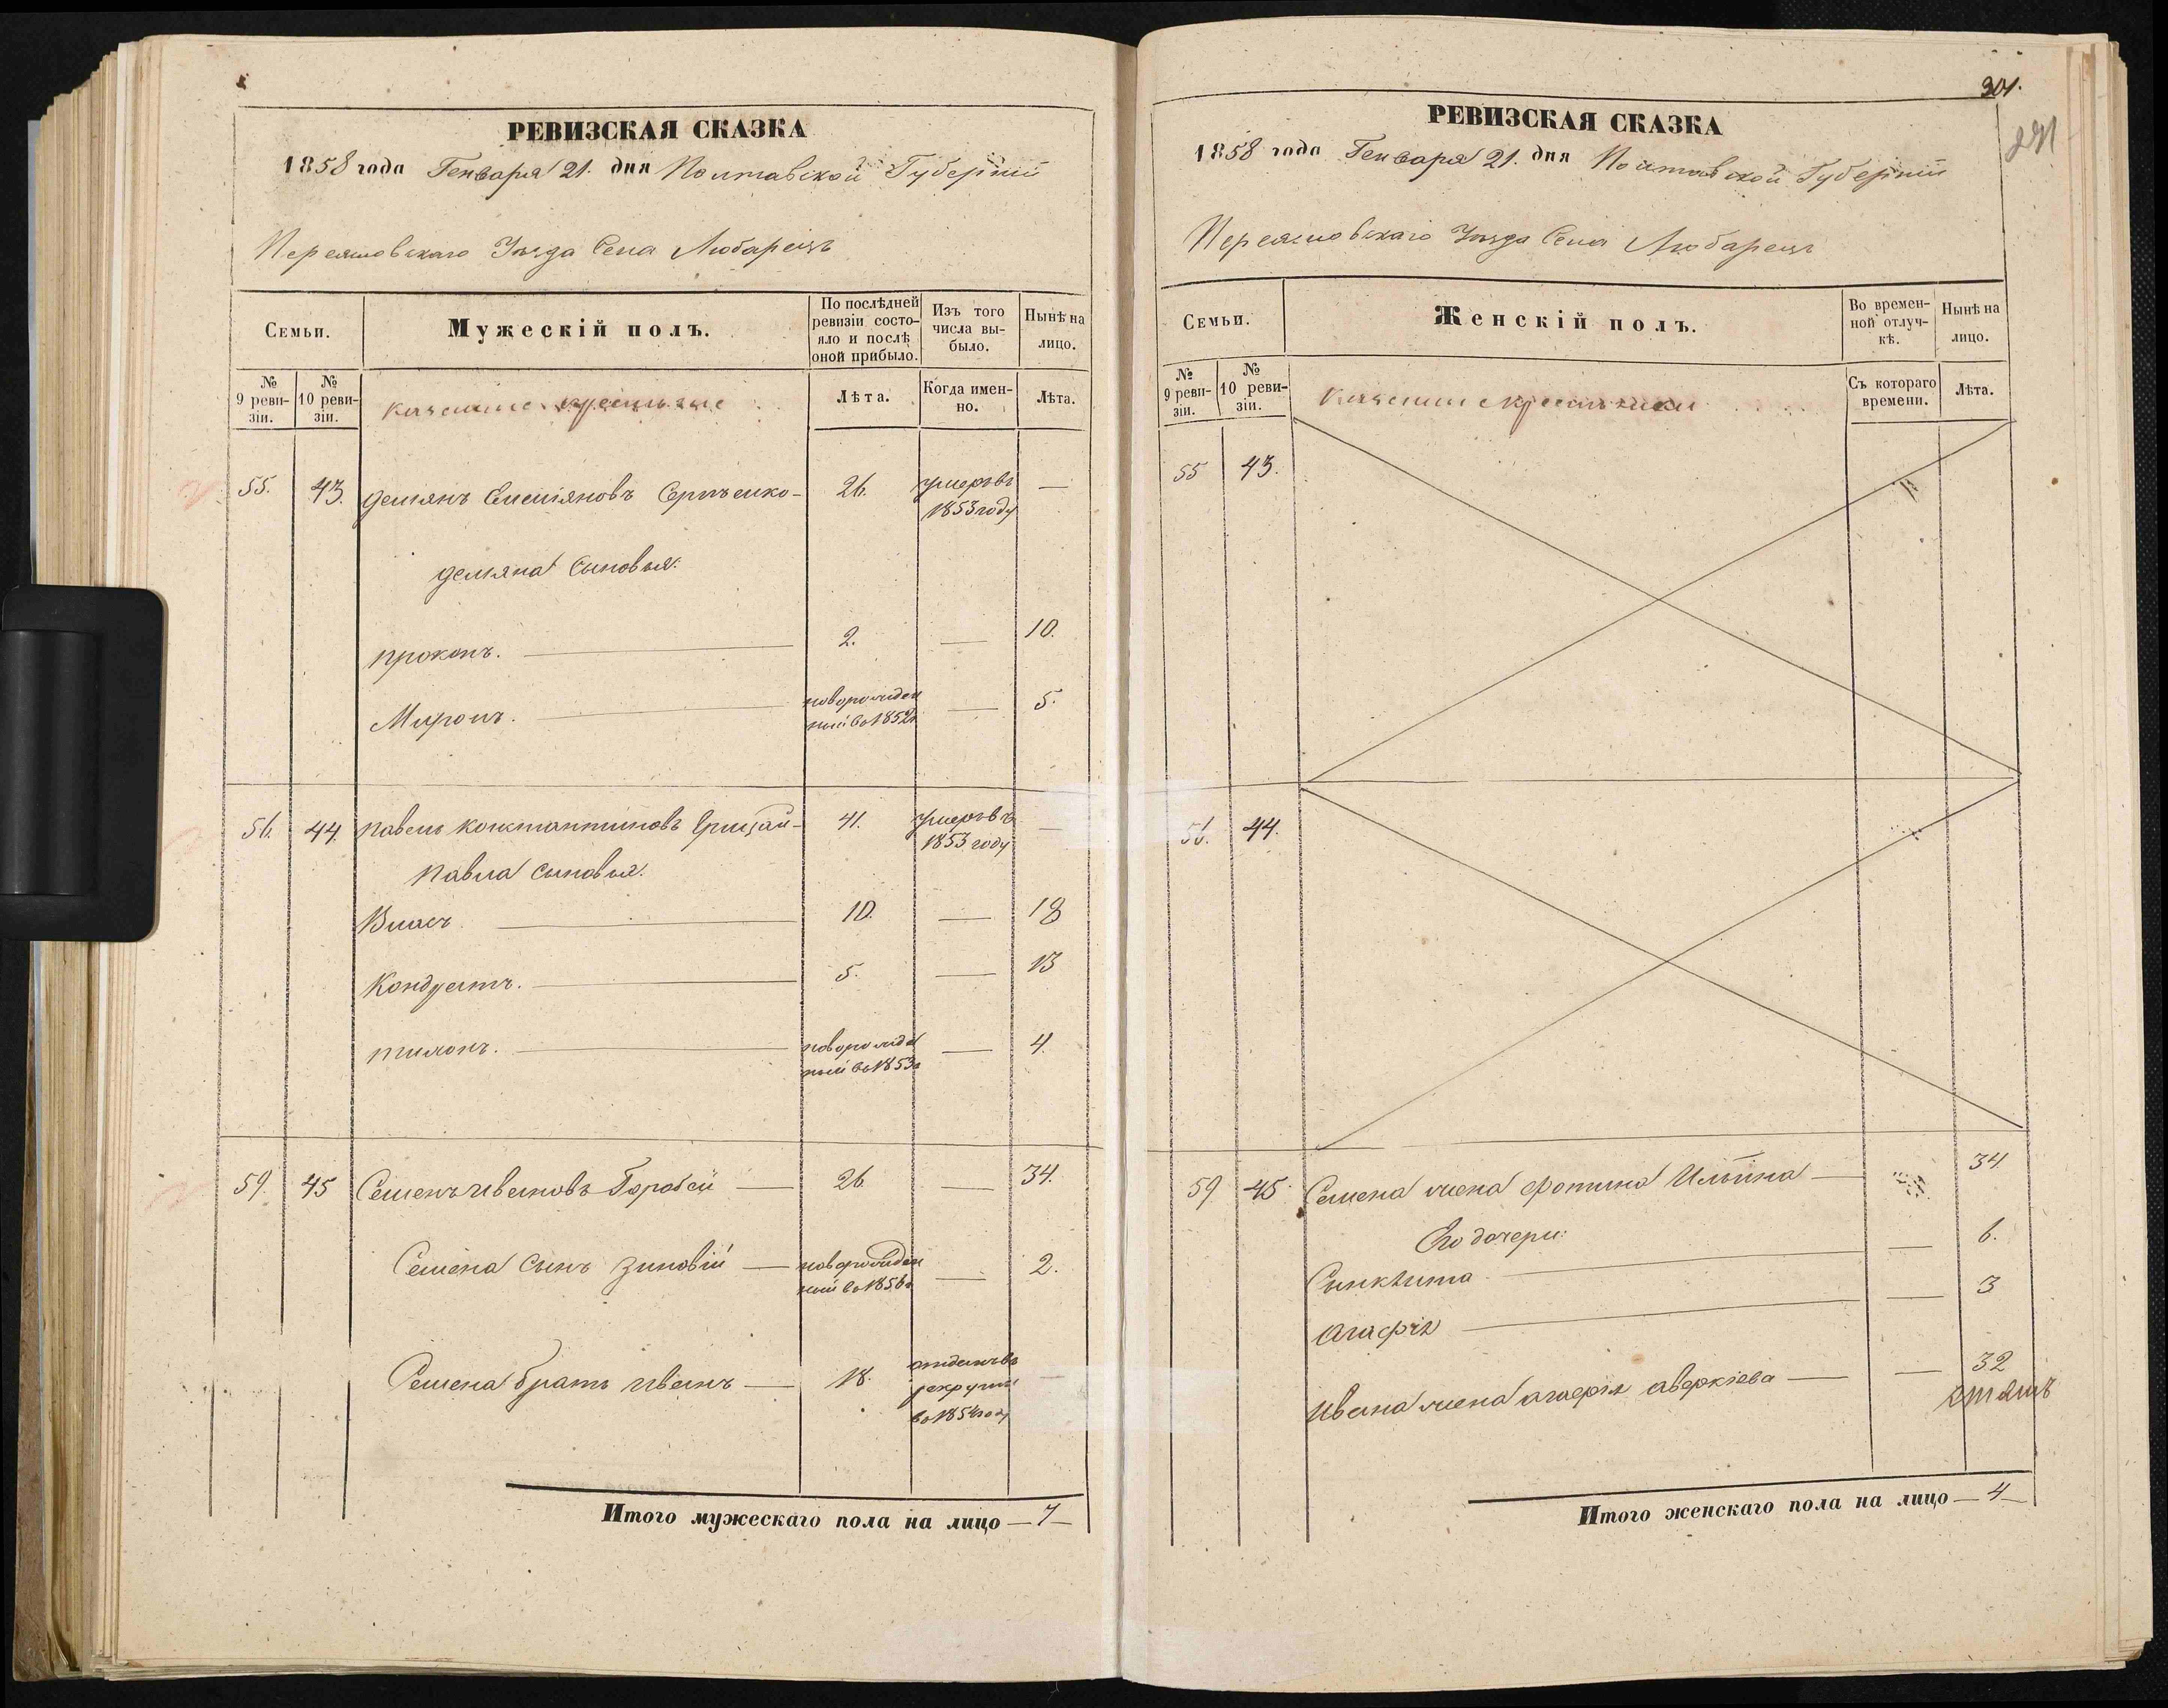 РЕВИЗСКАЯ СКАЗКА
1858 года Генваря 21. дня Полтавской Губерніи
Переяславскаго Уѣзда Села Любарецъ
Семьи.
Мужескій полъ.
По послѣдней ревизіи состояло и послѣ оной прибыло.
Изъ того числа выбыло.
Нынѣ на лицо.
№ 9 ревизіи.
№ 10 ревизіи.
казенные крестьяне
Лѣта.
Когда именно.
Лѣта.
55. 43. Демянъ Емельяновъ 26. умеръ въ 1853 году —
Демяна сыновья:
Прокопъ. — 2. — 10.
Миронъ. — новорожденный въ 1852 г — 5.
56. 44. Павелъ Константиновъ Грицай — 41. умеръ въ 1853 году —
Павла сыновья:
Власъ — 10. — 18
Кондратъ. — 5. — 13
Тихонъ. — новорожденный въ 1853 г — 4.
59. 45 Семенъ Ивановъ Горобей — 26 — 34.
Семена сынъ Зиновій — новорожденный въ 1856 г — 2.
Семена братъ Иванъ — 18. отданъ въ рекруты въ 1854 году —
Итого мужескаго пола на лицо — 7 —
301.
РЕВИЗСКАЯ СКАЗКА
1858 года Генваря 21. дня Полтавской Губерніи
Переяславскаго Уѣзда Села Любарецъ
Семьи.
Женскій полъ.
Во временной отлучкѣ.
Нынѣ на лицо.
№ 9 ревизіи.
№ 10 ревизіи.
казенные крестьянки
Съ котораго времени.
Лѣта.
55 43.
56. 44.
59 45. Семена жена Фотина Ильина — 34
Его дочери:
Синклита — — 6.
Агафія — — 3
Ивана жена Агафія Аверкіева — — 32
Итого женскаго пола на лицо — 4 —